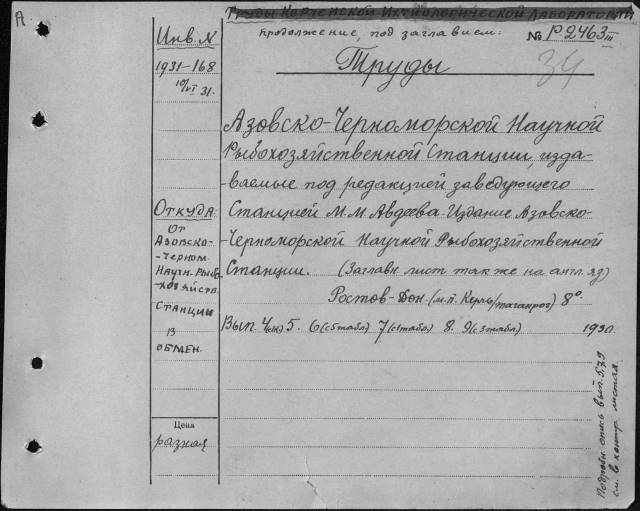 А
Труды Керченской Ихтиологической Лаборатории
продолжение, под заглавием:
№ Р2463 III
34
Труды
Инв. №
1931-168
10/VI 31.
Азовско-Черноморской Научной
Рыбохозяйственной Станции, изда-
ваемые под редакцией заведующего
Станцией М.М. Авдеева. Издание Азовско-
Черноморской Научной Рыбохозяйственной
Станции. (Заглавн. лист также на англ. яз)
Ростов-Дон. (м.п. Керчь/Таганрог) 8°.
Вып. 4 5. 6 (с 5 табл) 7 (с 1 табл) 8. 9 (с 3 табл) 1930.
Откуда:
От
Азовско-
-Черном
Научн. Рыбо
-хозяйств
Станции
в
обмен.
Цена
разная
Подробн. опись вып. 5, 7, 9
см. в контр. листах.